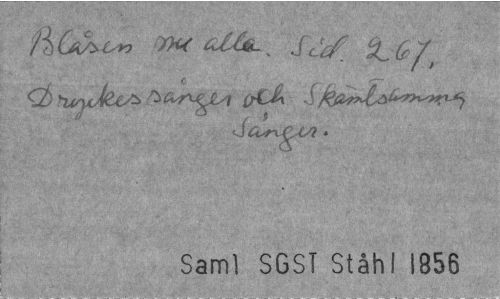 Blåsen nu alla. Sid. 267.
Dryckessånger och Skämtsamma
Sånger.
Saml SGST Ståhl 1856